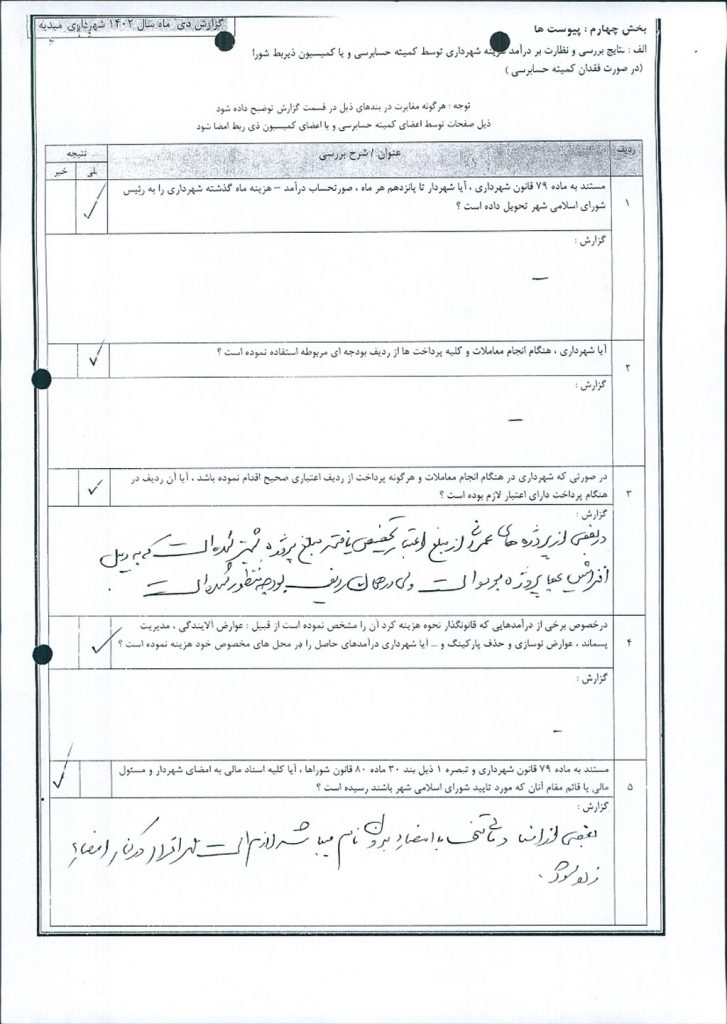 گزارش دی ماه سال ۱۴۰۲ شهرداری میدیه
بخش چهارم : پیوست ها
الف : نتایج بررسی و نظارت بر درآمد هزینه شهرداری توسط کمیته حسابرسی و یا کمیسیون ذیربط شورا
(در صورت فقدان کمیته حسابرسی )
توجه : هرگونه مغایرت در بندهای ذیل در قسمت گزارش توضیح داده شود
ذیل صفحات توسط اعضای کمیته حسابرسی و یا اعضای کمیسیون ذی ربط امضا شود
ردیف
عنوان / شرح بررسی
نتیجه
بلی
خیر
۱
مستند به ماده ۷۹ قانون شهرداری ، آیا شهردار تا پانزدهم هر ماه ، صورتحساب درآمد – هزینه ماه گذشته شهرداری را به رئیس
شورای اسلامی شهر تحویل داده است ؟
گزارش :
–
۲
آیا شهرداری ، هنگام انجام معاملات و کلیه پرداخت ها از ردیف بودجه ای مربوطه استفاده نموده است ؟
گزارش :
–
۳
در صورتی که شهرداری در هنگام انجام معاملات و هرگونه پرداخت از ردیف اعتباری صحیح اقدام نموده باشد ، آیا آن ردیف در
هنگام پرداخت دارای اعتبار لازم بوده است ؟
گزارش :
در بعضی از پروژه های عمرانی از مبلغ اعتبار تخصیص یافته مبلغ پروژه بیشتر شده است که به دلیل
افزایش بهای پروژه مربوط است ولی در همان ردیف بودجه منظور شده است .
۴
درخصوص برخی از درآمدهایی که قانونگذار نحوه هزینه کرد آن را مشخص نموده است از قبیل : عوارض آلایندگی ، مدیریت
پسماند ، عوارض نوسازی و حذف پارکینگ و ... آیا شهرداری درآمدهای حاصل را در محل های مخصوص خود هزینه نموده است ؟
گزارش :
–
۵
مستند به ماده ۷۹ قانون شهرداری و تبصره ۱ ذیل بند ۳۰ ماده ۸۰ قانون شوراها ، آیا کلیه اسناد مالی به امضای شهردار و مسئول
مالی یا قائم مقام آنان که مورد تایید شورای اسلامی شهر باشند رسیده است ؟
گزارش :
بعضی از اسناد با امضاء بدون نام میباشد لازم است مهر افراد در کنار امضاء
زده شود .